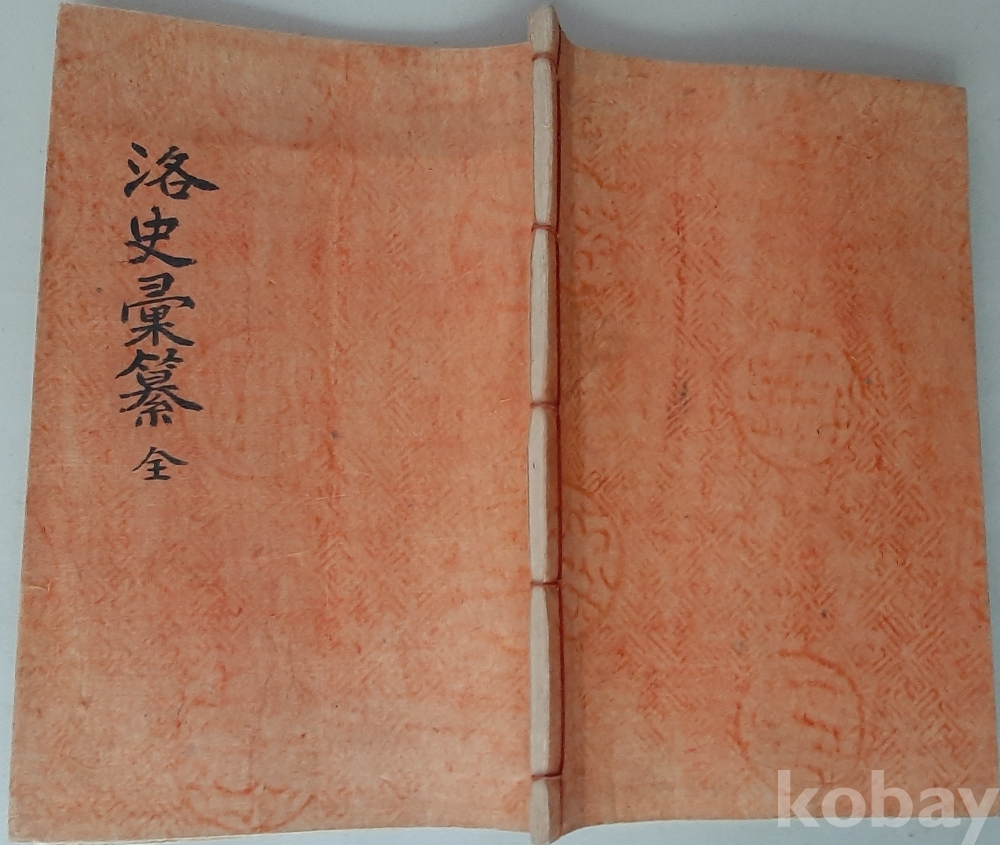 洛史彙纂 全
kobay